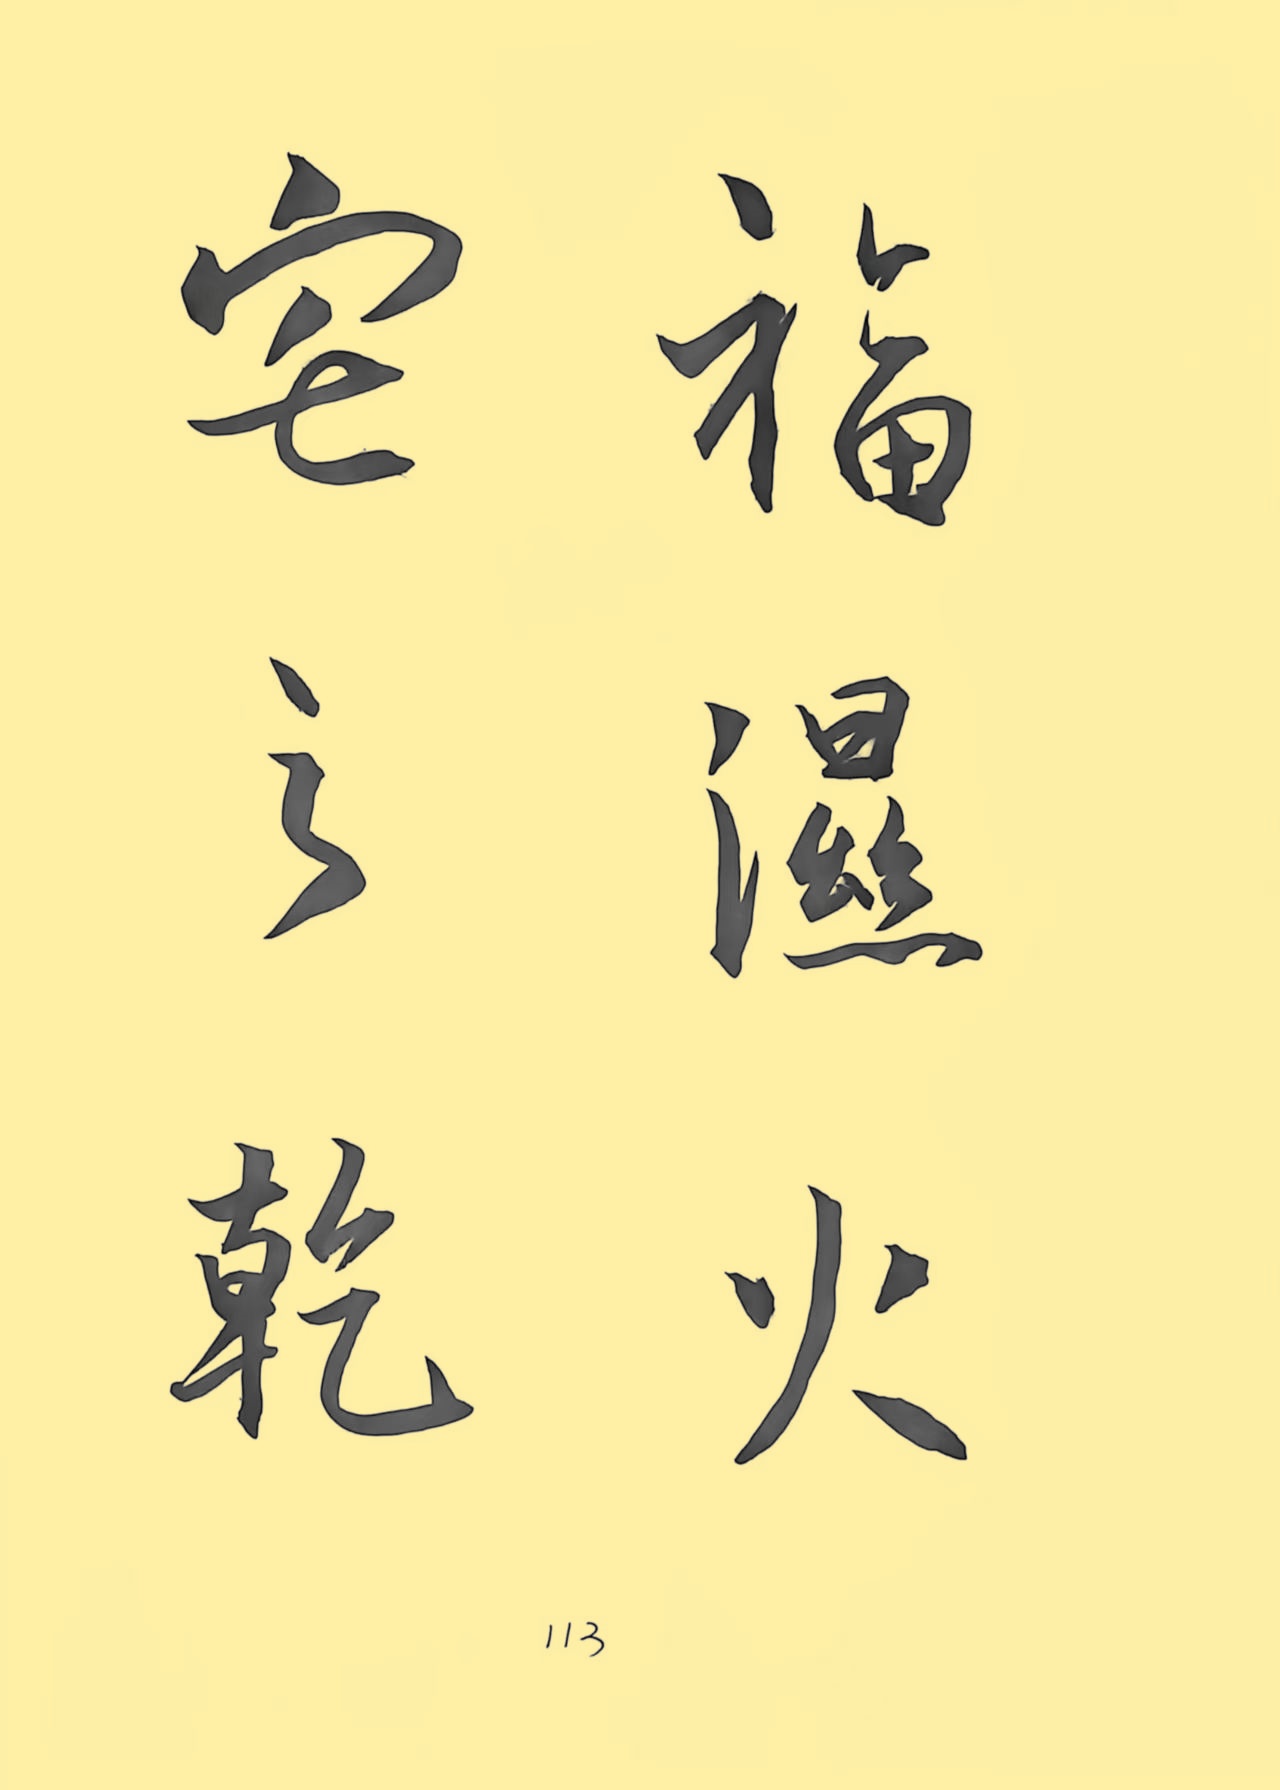 福濕火
宅之乾
113